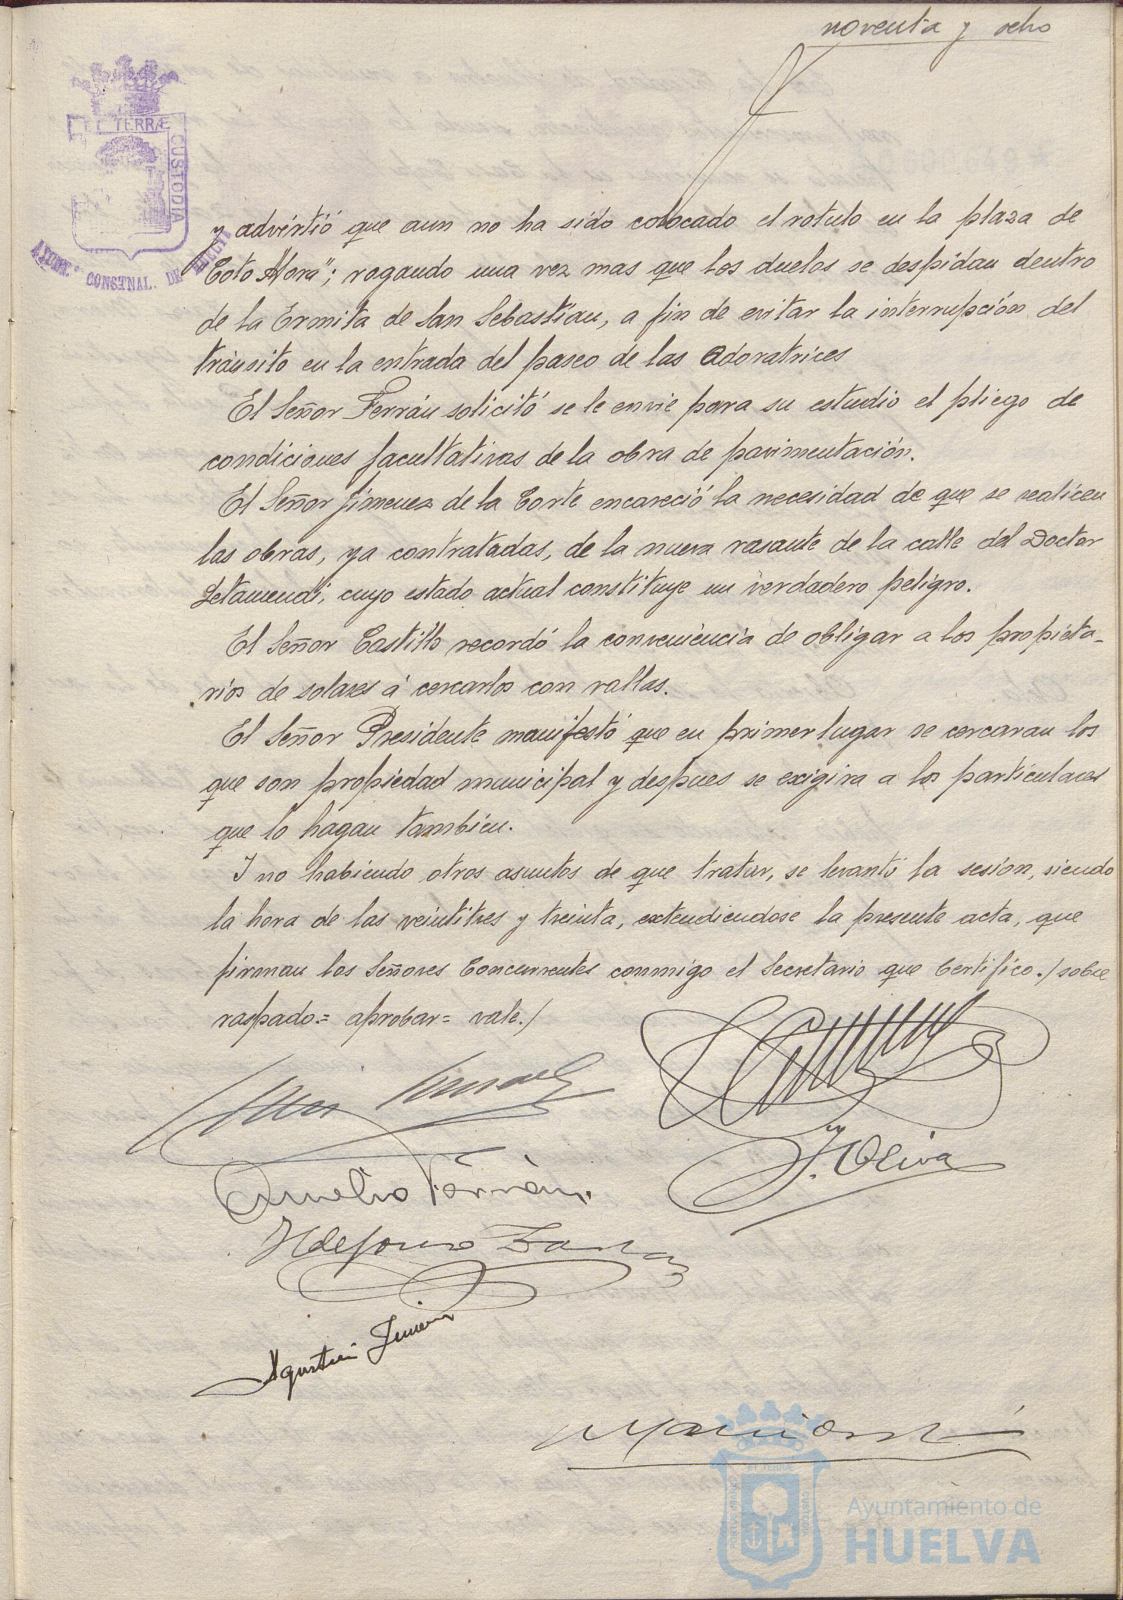 noventa y ocho
ET TERRÆ
CUSTODIA
AYUNT.º CONST.NAL. DE
y advirtió que aun no ha sido colocado el rotulo en la plaza de
"Coto Mora"; rogando una vez mas que los duelos se despidan dentro
de la Ermita de San Sebastian, a fin de evitar la interrupción del
tránsito en la entrada del paseo de las Adoratrices
El Señor Ferrán solicitó se le envie para su estudio el pliego de
condiciones facultativas de la obra de pavimentación.
El Señor Jimenez de la Corte encareció la necesidad de que se realicen
las obras, ya contratadas, de la nueva rasante de la calle del Doctor
Letamendi, cuyo estado actual constituye un verdadero peligro.
El Señor Castillo recordó la conveniencia de obligar a los propieta-
rios de solares á cercarlos con vallas.
El Señor Presidente manifestó que en primer lugar se cercaran los
que son propiedad municipal y despues se exigira a los particulares
que lo hagan tambien.
Y no habiendo otros asuntos de que tratar, se levantó la sesion, siendo
la hora de las veintitres y treinta, extendiendose la presente acta, que
firman los Señores Concurrentes conmigo el Secretario que Certifico./sobre
raspado.= aprobar= vale./
J. Oliva
Aurelio Ferrán
Ildefonso
Agustin Jimenez
Ayuntamiento de
HUELVA